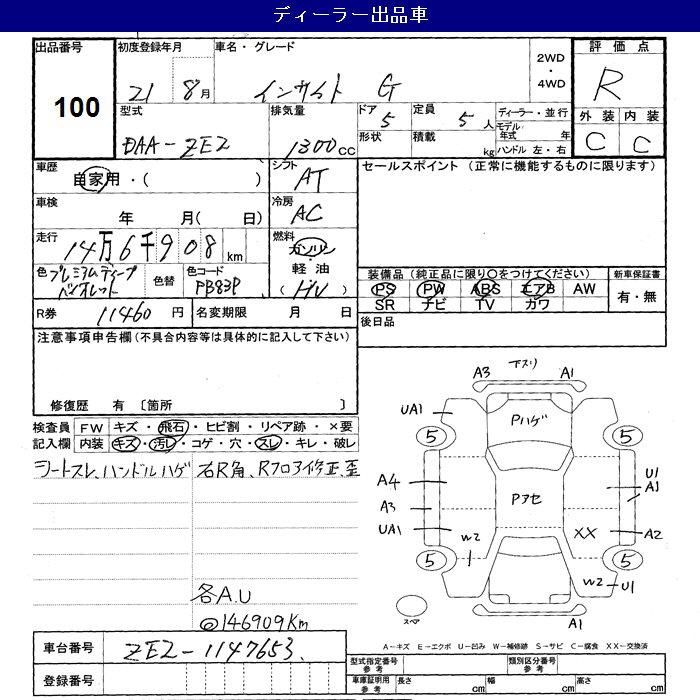 ディーラー出品車
出品番号 100
初度登録年月 21 8月
車名・グレード インサイト G
2WD・4WD
評価点 R
外装 C 内装 C
型式 DAA-ZE2
排気量 1300cc
ドア 5 形状
定員 5人 積載 kg
ディーラー・並行
モデル年式 年
ハンドル 左・右
車歴 自家用・( )
シフト AT
セールスポイント (正常に機能するものに限ります)
車検 年 月( 日)
冷房 AC
走行 14万6千908km
燃料 ガソリン・軽油 (HV)
色 プレミアムディープバイオレット
色替
色コード PB83P
装備品(純正品に限り○をつけてください)
PS PW ABS エアB AW
SR ナビ TV カワ
新車保証書 有・無
R券 11460円
名変期限 月 日
後日品
注意事項申告欄(不具合内容等は具体的に記入して下さい)
修復歴 有 〔箇所 〕
検査員記入欄
FW キズ・飛石・ヒビ割・リペア跡・×要
内装 キズ・汚レ・コゲ・穴・スレ・キレ・破レ
シートスレ、ハンドルハゲ
右R角、Rフロア修正、歪
各A.U
@146909Km
A3 下スリ A1
UA1 Pハゲ
5 5
A4 Pアセ U1 A1
A3
UA1 W2 XX A2
5 5
W2 U1
スペア A1
A―キズ E―エクボ U―凹み W―補修跡 S―サビ C―腐食 XX―交換済
車台番号 ZE2-1147653
登録番号
型式指定番号 参考
類別区分番号 参考
車庫証明用 参考 長さ cm 幅 cm 高さ cm